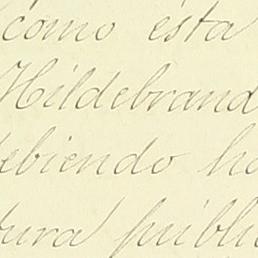 como ésta
Hildebrand
debiendo ha
tura públi